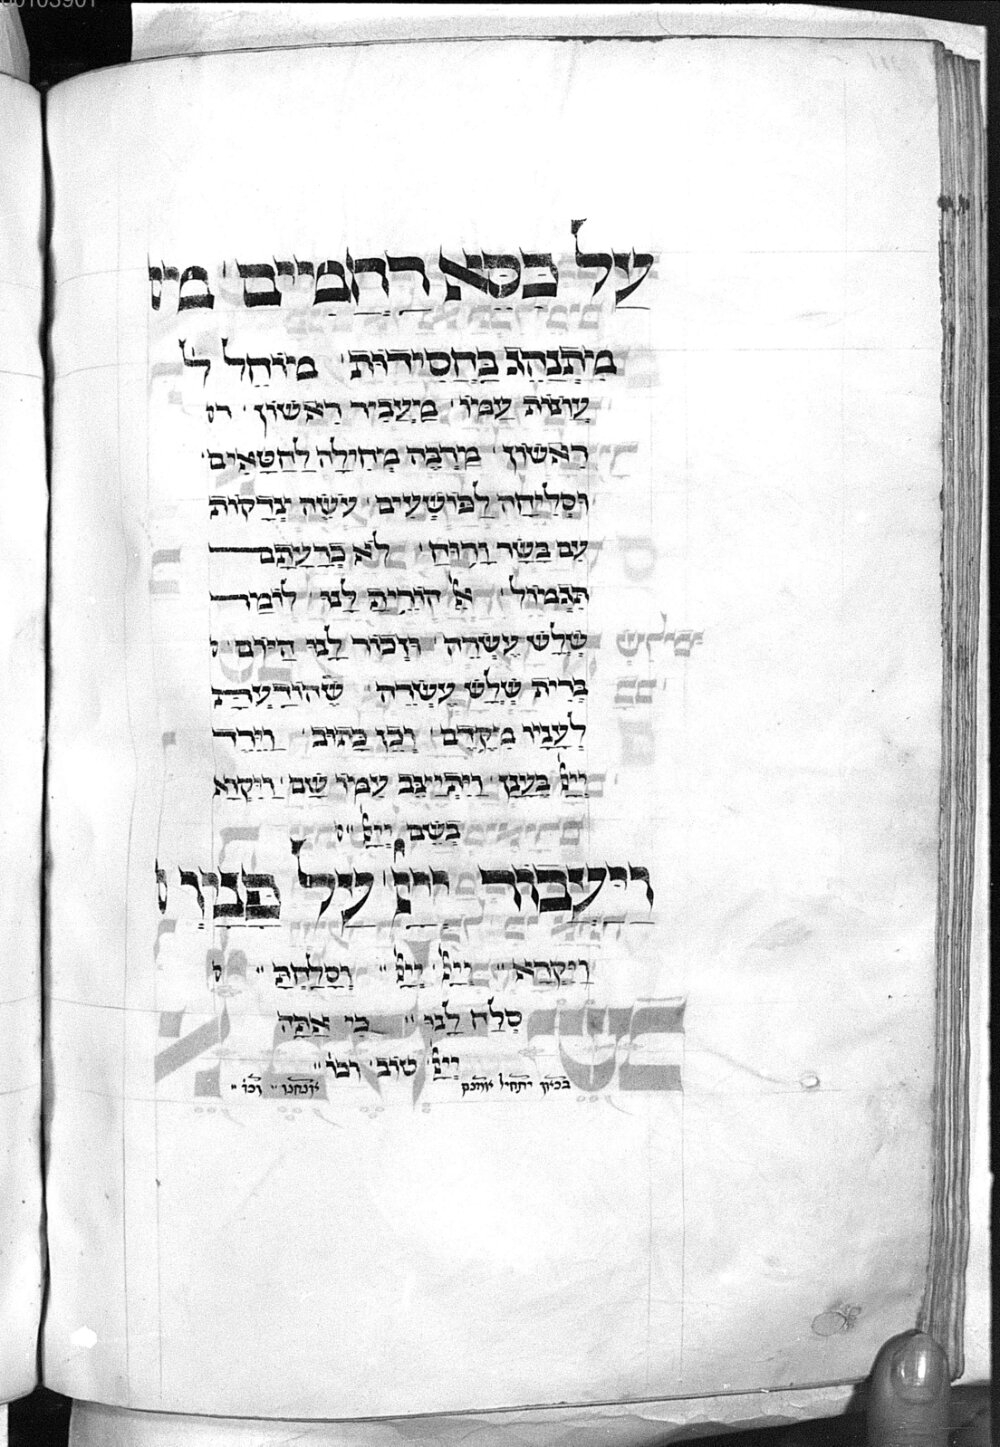 עַל כִּסֵּא רַחֲמִים מי
מִתְנַהֵג בַּחֲסִידוּת מוֹחֵל ל
עֲוֹנוֹת עַמּוֹ מַעֲבִיר רִאשׁוֹן רִ
רִאשׁוֹן מַרְבֶּה מְחִילָה לַחַטָּאִים
וּסְלִיחָה לַפּוֹשְׁעִים עֹשֶׂה צְדָקוֹת
עִם בָּשָׂר וָרוּחַ לֹא כְרָעָתָם
תִּגְמוֹל אֵל הוֹרֵיתָ לָּנוּ לוֹמַר
שְׁלֹשׁ עֶשְׂרֵה וּזְכוֹר לָנוּ הַיּוֹם
בְּרִית שְׁלֹשׁ עֶשְׂרֵה שֶׁהוֹדַעְתָּ
לֶעָנָיו מִקֶּדֶם וְכֵן כָּתוּב וַיֵּרֶד
יְיָ בֶּעָנָן וַיִּתְיַצֵּב עִמּוֹ שָׁם וַיִּקְרָא
בְשֵׁם יְיָ
וַיַּעֲבוֹר יְיָ עַל פָּנָיו
וַיִּקְרָא יְיָ יְיָ וְסָלַחְתָּ
סְלַח לָנוּ כִּי אַתָּה
יְיָ טוֹב וכו׳
וכו׳